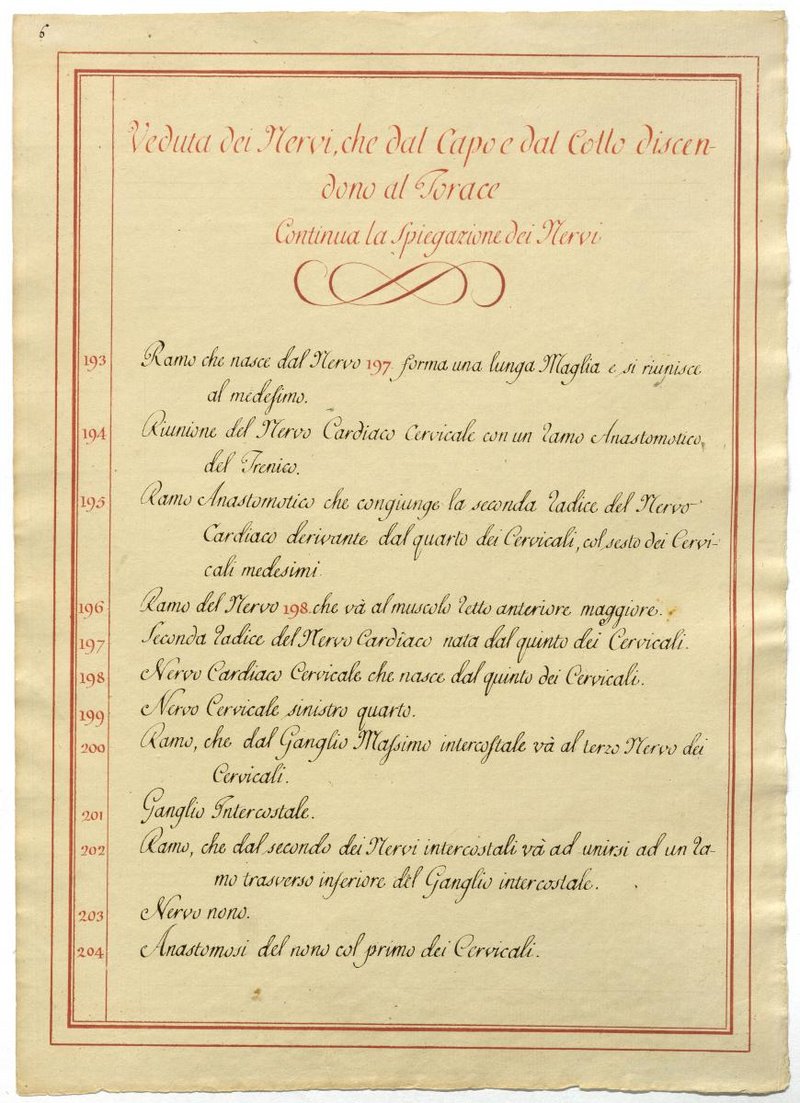 6
Veduta dei Nervi, che dal Capo e dal Collo discen-
dono al Torace
Continua la Spiegazione dei Nervi
193 Ramo che nasce dal Nervo 197. forma una lunga Maglia e si riunisce
al medesimo.
194 Riunione del Nervo Cardiaco Cervicale con un ramo Anastomotico,
del Frenico.
195 Ramo Anastomotico che congiunge la seconda radice del Nervo
Cardiaco derivante dal quarto dei Cervicali, col sesto dei Cervi-
cali medesimi
196 Ramo del Nervo 198. che và al muscolo retto anteriore maggiore.
197 Seconda radice del Nervo Cardiaco nata dal quinto dei Cervicali.
198 Nervo Cardiaco Cervicale che nasce dal quinto dei Cervicali.
199 Nervo Cervicale sinistro quarto.
200 Ramo, che dal Ganglio Massimo intercostale và al terzo Nervo dei
Cervicali.
201 Ganglio Intercostale.
202 Ramo, che dal secondo dei Nervi intercostali và ad unirsi ad un ra-
mo trasverso inferiore del Ganglio intercostale.
203 Nervo nono.
204 Anastomosi del nono col primo dei Cervicali.